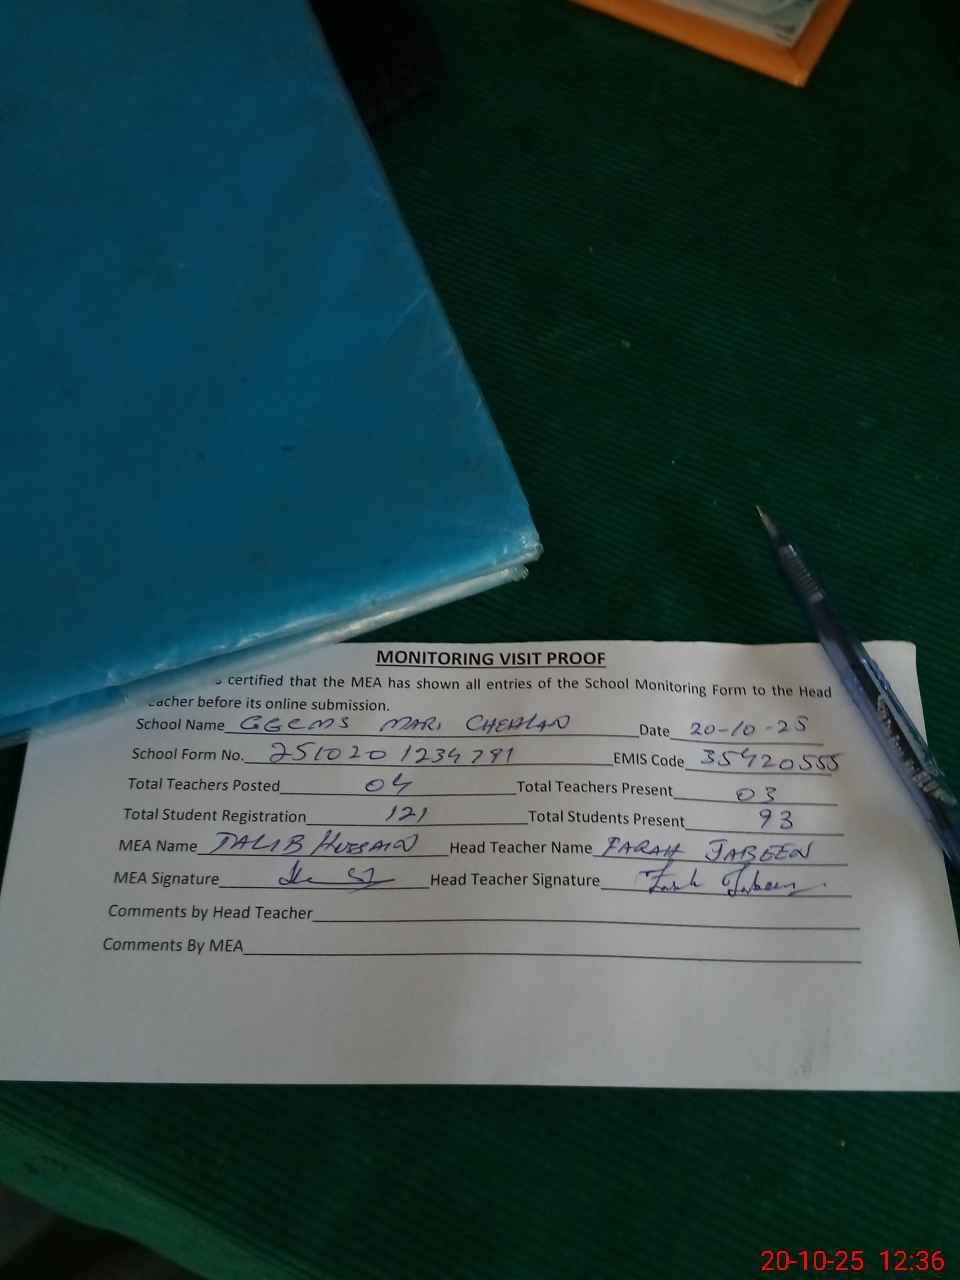 MONITORING VISIT PROOF
certified that the MEA has shown all entries of the School Monitoring Form to the Head
eacher before its online submission.
School Name GGCMS MARI CHEHLAN Date 20-10-25
School Form No. 251020 1234791 EMIS Code 35420555
Total Teachers Posted 04 Total Teachers Present 03
Total Student Registration 121 Total Students Present 93
MEA Name TALIB HUSSAIN Head Teacher Name FARAH JABEEN
MEA Signature Head Teacher Signature Farah Jabeen
Comments by Head Teacher
Comments By MEA
20-10-25 12:36